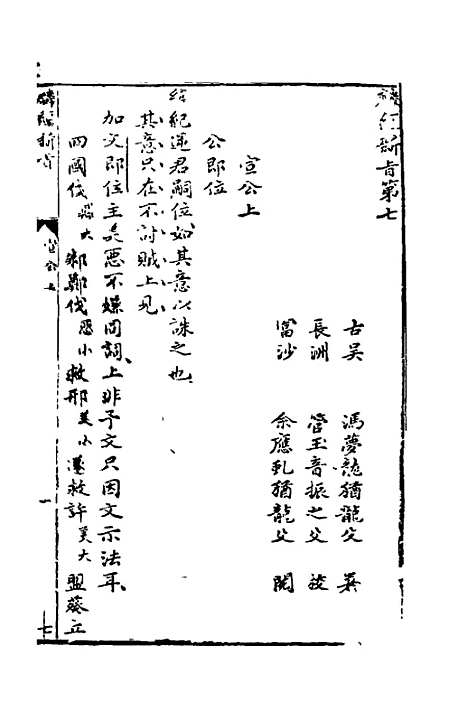 麟經新旨第七
古吳 馮夢龍猶龍父 纂
長洲 管玉音振之父 校
富沙 余應虬猶龍父 閱
宣公上
公即位
紀逆君嗣位如其意以誅之也
其意只在不討賊上見
加文即位主美惡不嫌同詞上非予文只因文示法耳
四國伐 惡大 鄭鄭伐 惡小 救邢 美小 遂救許 美大 盟葵丘
麟經新旨 宣公上 一 七